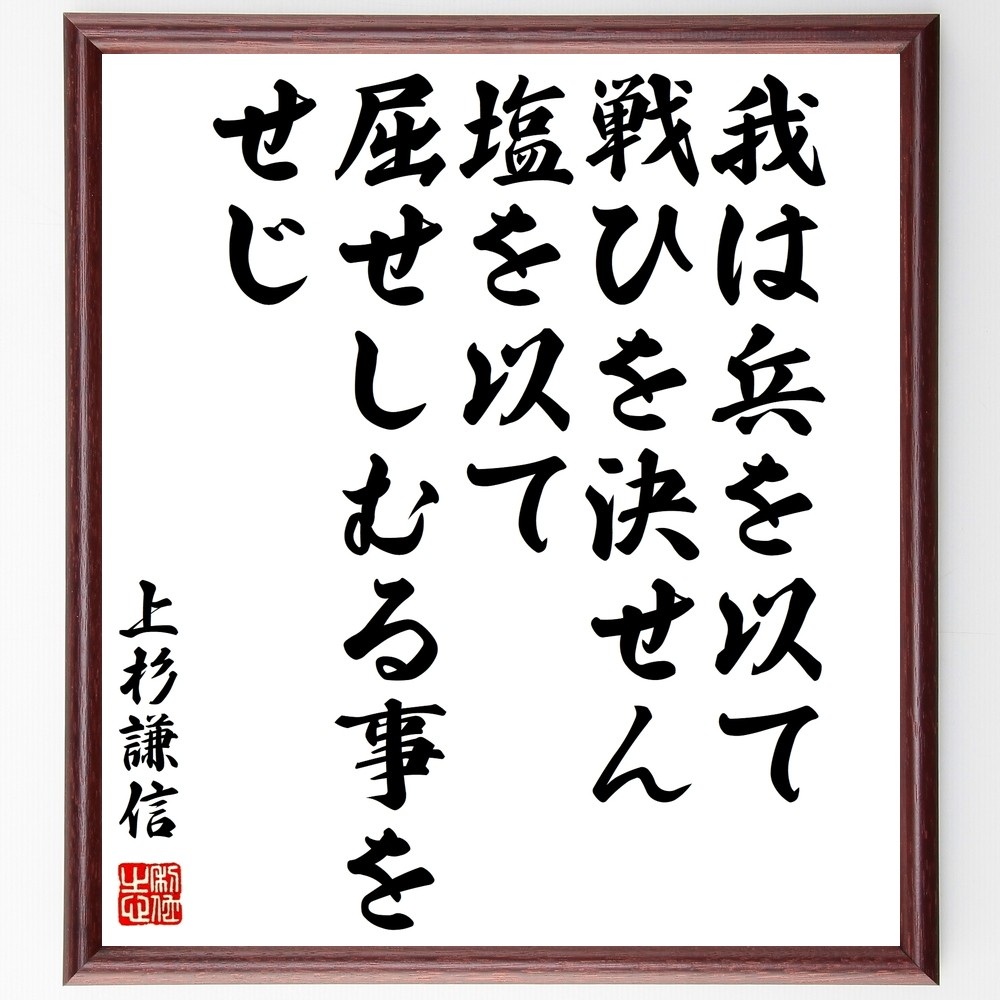 我は兵を以て
戦ひを決せん
塩を以て
屈せしむる事を
せじ
上杉謙信